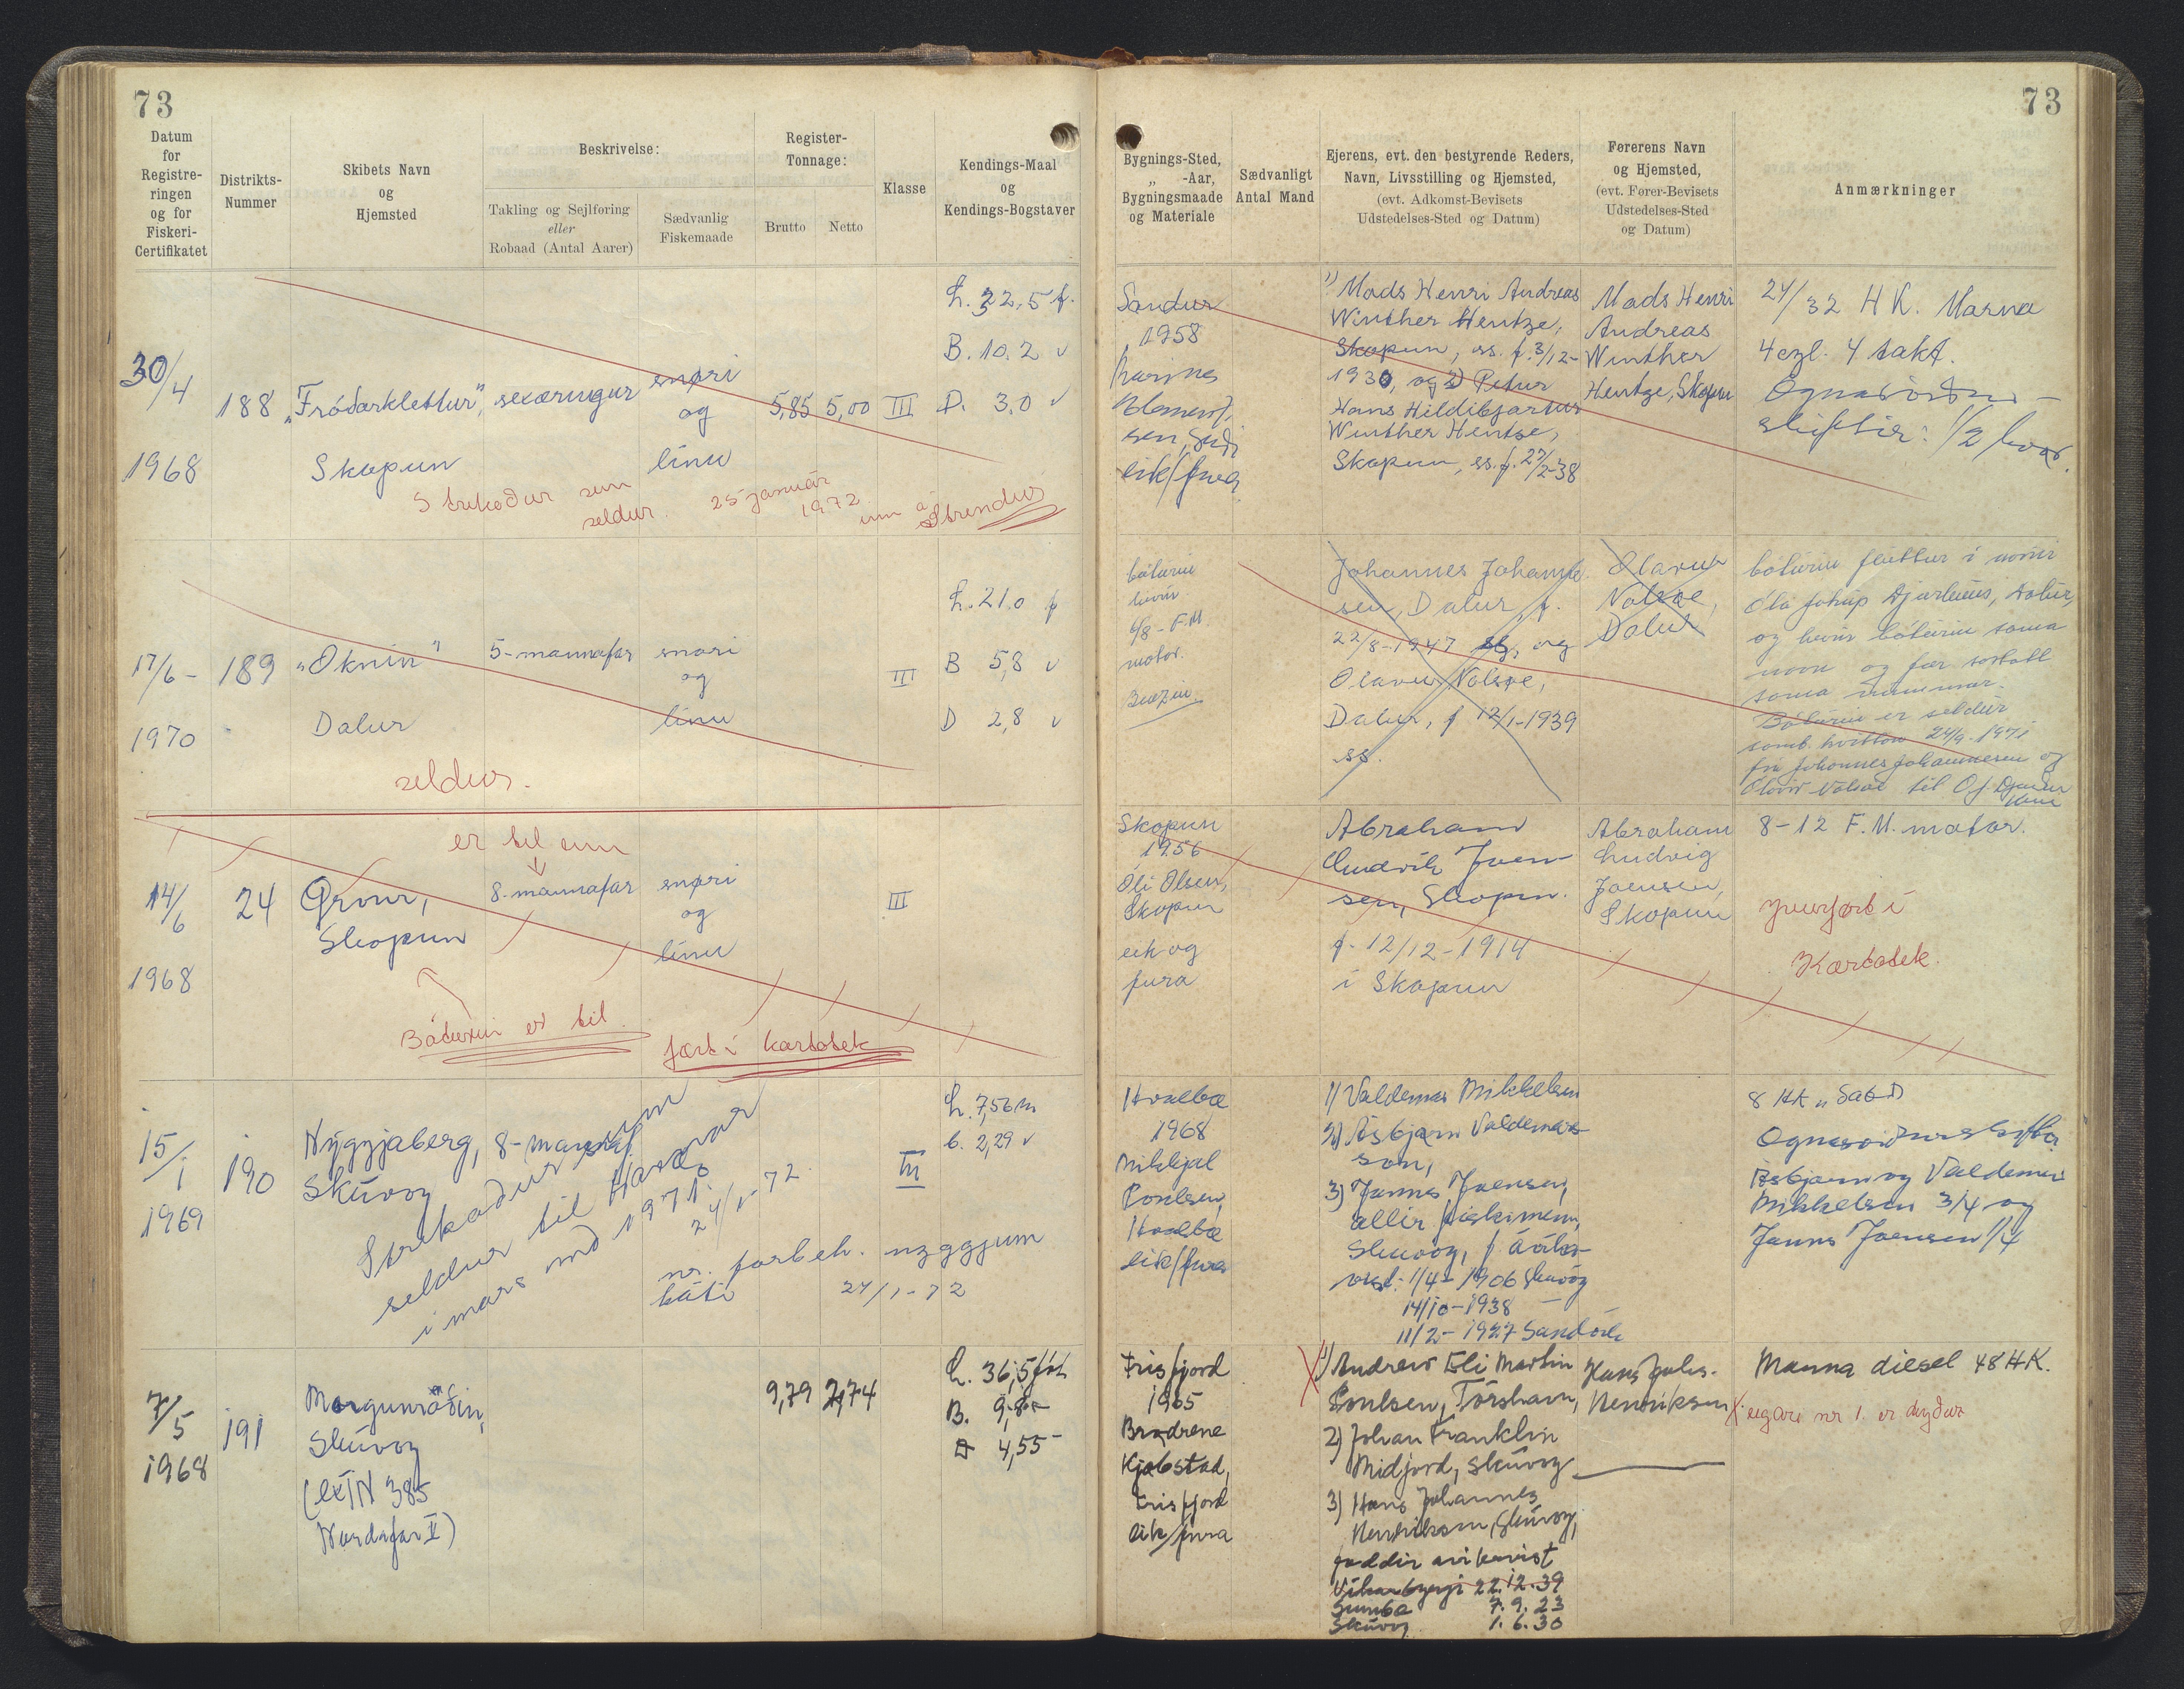 73
73
Datum
for
Registre-
ringen
og for
Fiskeri-
Certifikatet
Distrikts-
Nummer
Skibets Navn
og
Hjemsted
Beskrivelse:
Takling og Sejlføring
eller
Robaad (Antal Aarer)
Sædvanlig
Fiskemaade
Register-
Tonnage:
Brutto
Netto
Klasse
Kendings-Maal
og
Kendings-Bogstaver
Bygnings-Sted,
„ -Aar,
Bygningsmaade
og Materiale
Sædvanligt
Antal Mand
Ejerens, evt. den bestyrende Reders,
Navn, Livsstilling og Hjemsted,
(evt. Adkomst-Bevisets
Udstedelses-Sted og Datum)
Førerens Navn
og Hjemsted,
(evt. Fører-Bevisets
Udstedelses-Sted
og Datum)
Anmærkninger
30/4
1968
188
„Fróðarklettur",
Skopun
sexæringur
snøri
og
línu
5,85
5,00
III
L. 22,5 f.
B. 10.2 v
D. 3,0 v
Strikaður sum
seldur. 25 január
1972 inn á Strendur
Sandur
1958
eik/fura
1) Mads Henri Andreas
Winther Hentze,
Skopun, ss. f. 3/12-
1930, og 2) Petur
Hans Hildibjartur
Winther Hentze,
Skopun, ss. f. 27/2-38
Mads Henri
Andreas
Winther
Hentze, Skopun
24/32 HK. Marna
4 cyl. 4 takt.
Ognarviður-
skiftir: 1/2 hvør.
17/6-
1970
189
„Oknin"
Dalur
5-mannafar
snøri
og
línu
III
L. 21.0 f
B 5,8 v
D 2,8 v
seldur.
báturin
hevir
6/8-F.M.
motor.
Benzin
Johannes Johanne-
sen, Dalur, f.
22/8-1947 og
Olavur Nolsøe,
Dalur, f 12/1-1939
ss.
Olavur
Nolsøe,
Dalur
báturin fluttur í navn
Óla Jákup Djurhuus, Dalur,
og hevir báturin sama
navn og fær
sama nummar.
Báturin er seldur
samb. kvittan 24/9-1971
frá Johannes Johannesen og
Ólavur Nolsøe til O J. Djurhuus
14/6
1968
24
Skopun
er til enn
8-mannafar
snøri
og
línu
III
Báturin er til
fært í kartotek
Skopun
1956
Óli Olsen,
Skopun
eik og
fura
Abraham
Ludvík Joen-
sen, Skopun.
f. 12/12-1914
í Skopun
Abraham
Ludvig
Joensen,
Skopun
8-12 F.M. motor.
yvirført í
Kartotek.
15/1
1969
190
Nýggjaberg,
Skúvoy
8-mannaf.
III
L. 7,56 m
b. 2,29 v
Strikaður sum
seldur til Havnar
í mars mð 1971.
24/1-72.
nr. forbeh. nýggjum
báti 24/1-72
Hvalba
1968
Mikkjal
Poulsen,
Hvalba
eik/fura
1) Valdemar Mikkelsen
2) Asbjørn Valdemar-
son,
3) Jannus Joensen,
allir fiskimenn,
Skúvoy, f ávika-
vist: 1/4-1906 Skúvoy
14/10-1938 —
11/2-1927 Sandvík
8 HK „Sabb
Ognarviðurskifti
Asbjørn og Valdemar
Mikkelsen 3/4 og
Jannus Joensen 1/4
7/5
1968
191
Morgunroðin,
Skúvoy
(ex TN 385
Nordafar II)
9,79
2,74
L. 36,5 fót
B. 9,8 -
D 4,55 -
Trisfjord
1965
Brødrene
Kjøbstad,
Trisfjord
eik/fura
1) Andrew Eli Martin
Poulsen, Tórshavn,
2) Johan Franklin
Midjord, Skúvoy
3) Hans Johannes
Henriksen, Skúvoy,
føddir ávikavist
Vikarbyrgi 22.12.39
Sumba 7.9.23
Skúvoy 1.6.30
Hans Johs.
Henriksen
Manna diesel 48 HK.
X eigari nr 1. er deyður